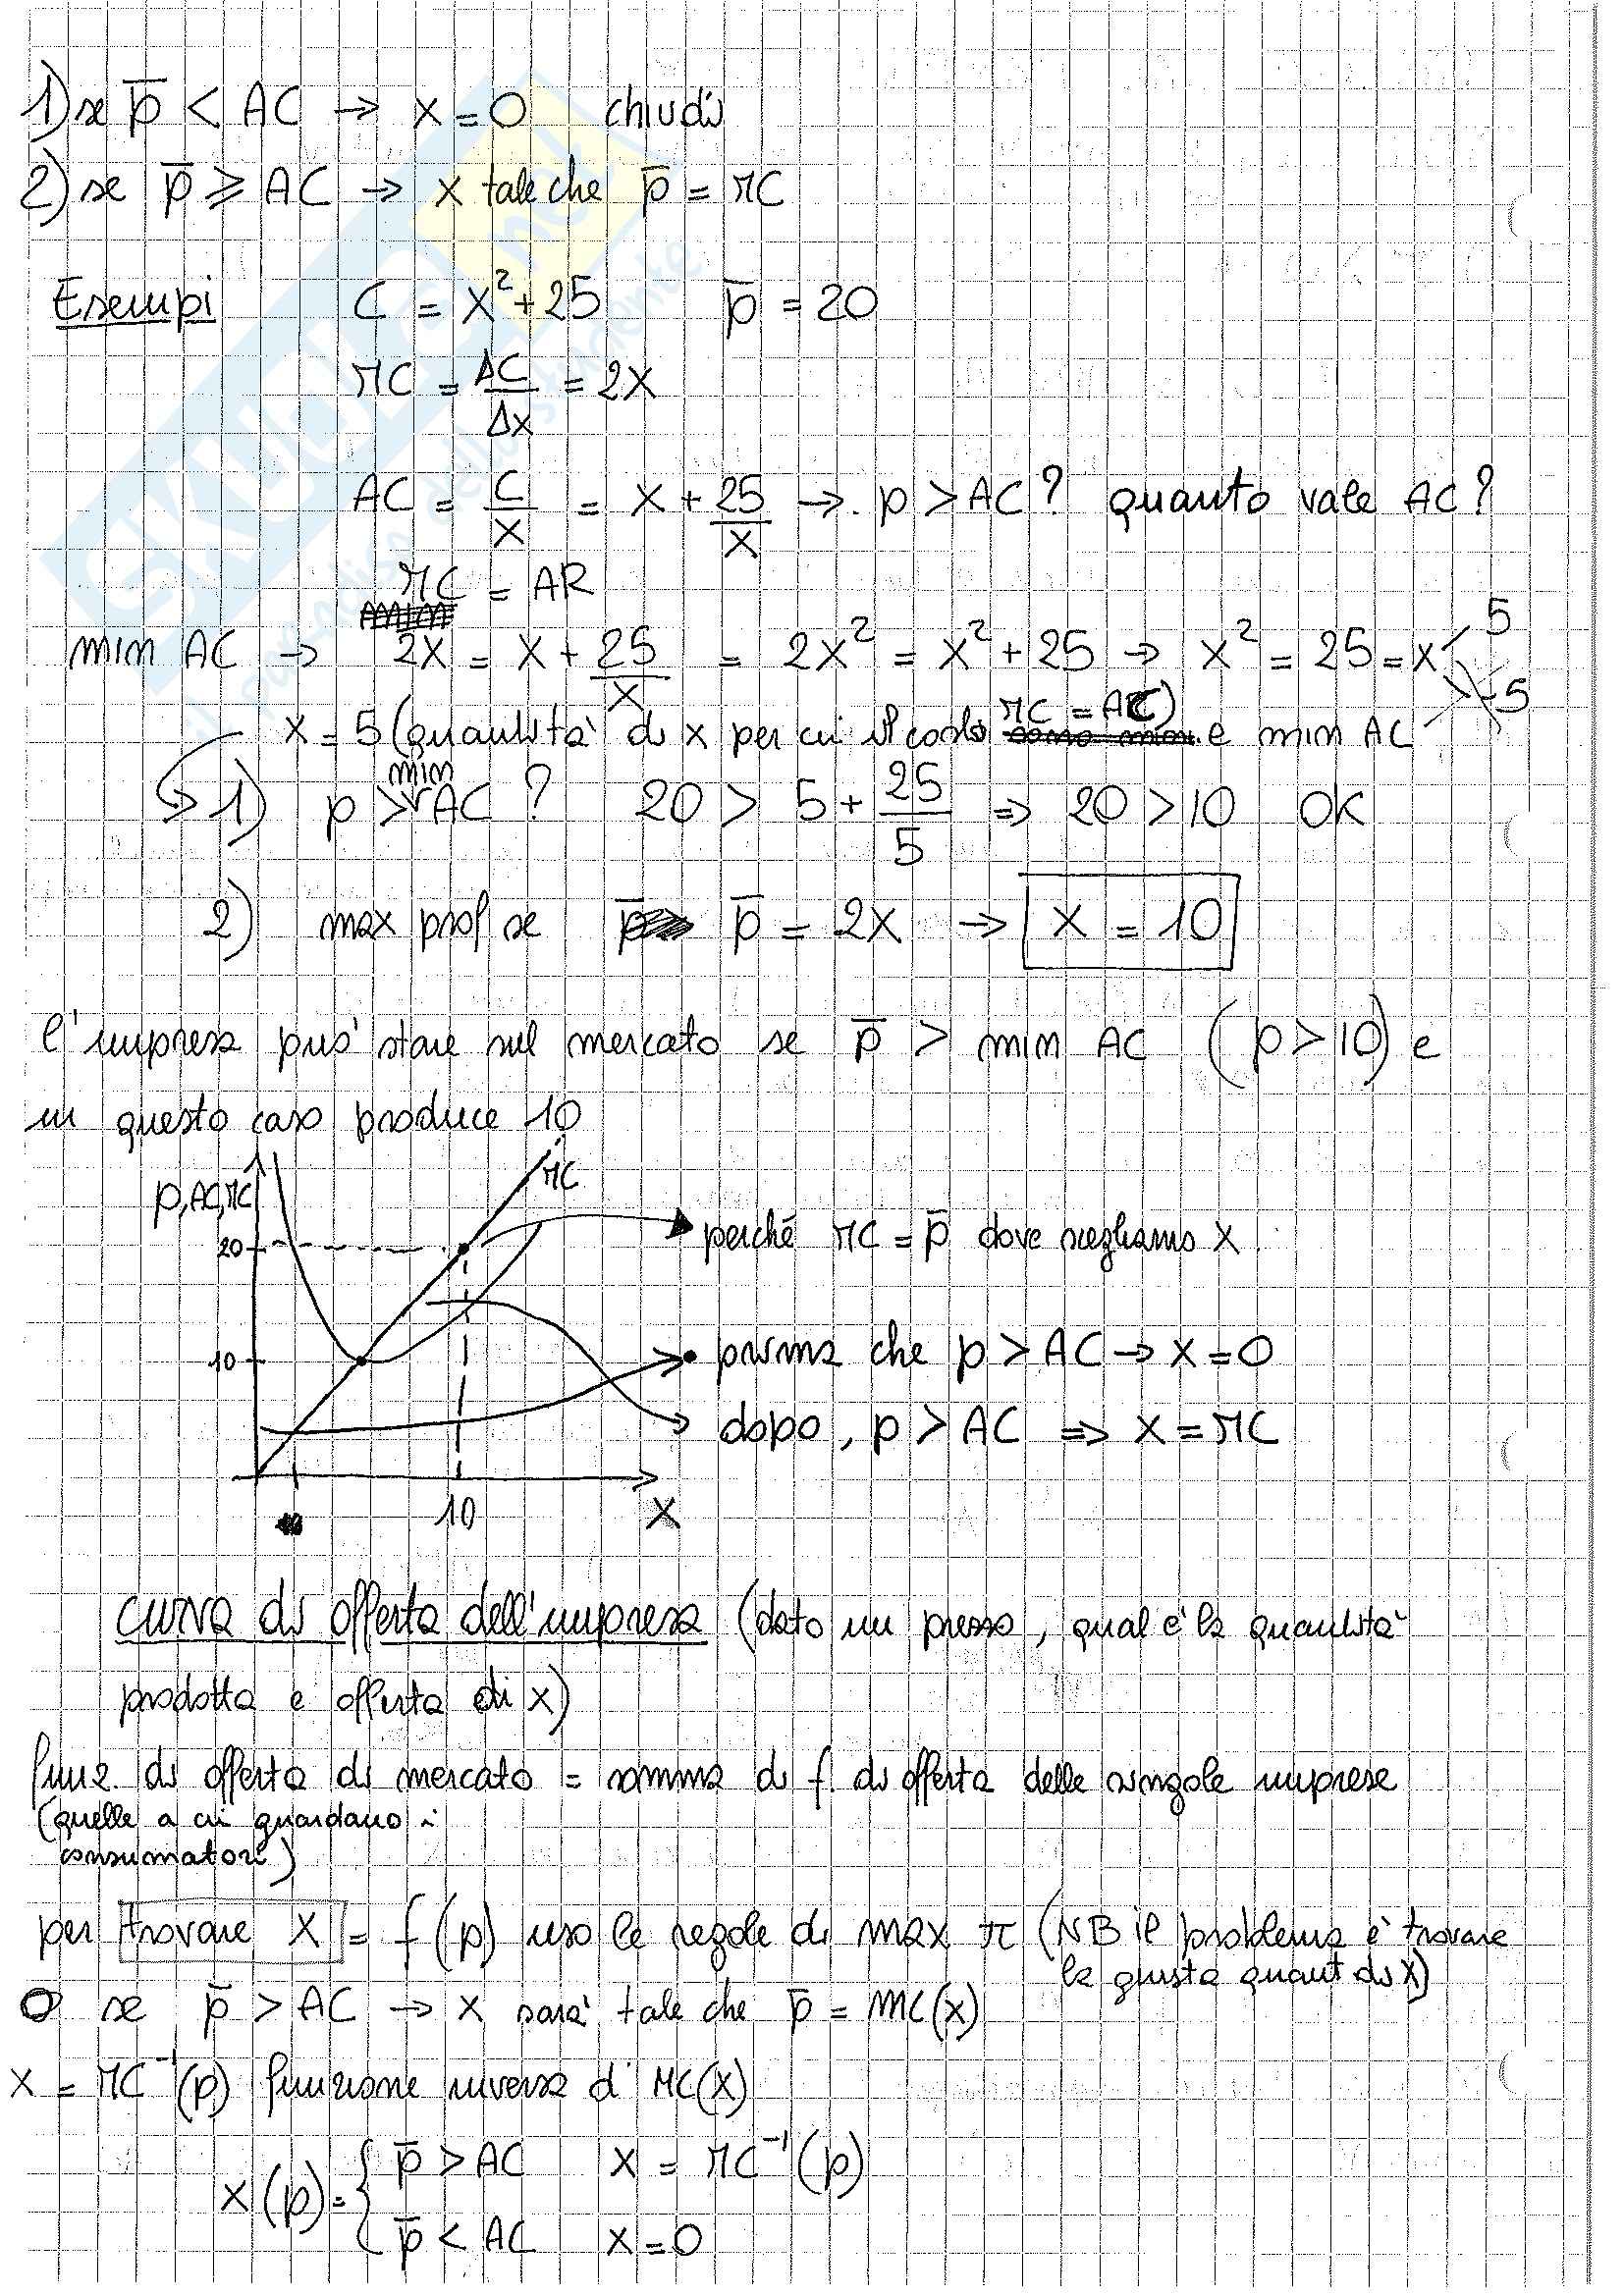 1) se p̅ < AC → x = 0 chiudi
2) se p̅ ≥ AC → x tale che p̅ = MC
Esempi C = x² + 25 p̅ = 20
MC = ΔC/Δx = 2x
AC = C/x = x + 25/x → p > AC? quanto vale AC?
MC = AR
min AC → 2x = x + 25/x = 2x² = x² + 25 → x² = 25 = x 5
-5
MC = AC)
x = 5 (quantità di x per cui il costo e min AC
min
1) p > AC ? 20 > 5 + 25/5 ⇒ 20 > 10 OK
2) max prof se p̅ = 2x → x = 10
l'impresa può stare sul mercato se p̅ > min AC (p > 10) e
in questo caso produce 10
MC
p, AC, MC
20
perché MC = p̅ dove scegliamo x
10
prima che p > AC → x = 0
dopo, p > AC ⇒ x = MC
10 x
curva di offerta dell'impresa (dato un prezzo, qual è la quantità
prodotta e offerta di x)
funz. di offerta di mercato = somma di f. di offerta delle singole imprese
(quelle a cui guardano i
consumatori)
per trovare x = f(p) uso le regole di max π (NB il problema è trovare
la giusta quant di x)
se p̅ > AC → x sarà tale che p̅ = MC(x)
x = MC⁻¹(p) funzione inversa di MC(x)
x(p) = { p̅ > AC x = MC⁻¹(p)
p̅ < AC x = 0